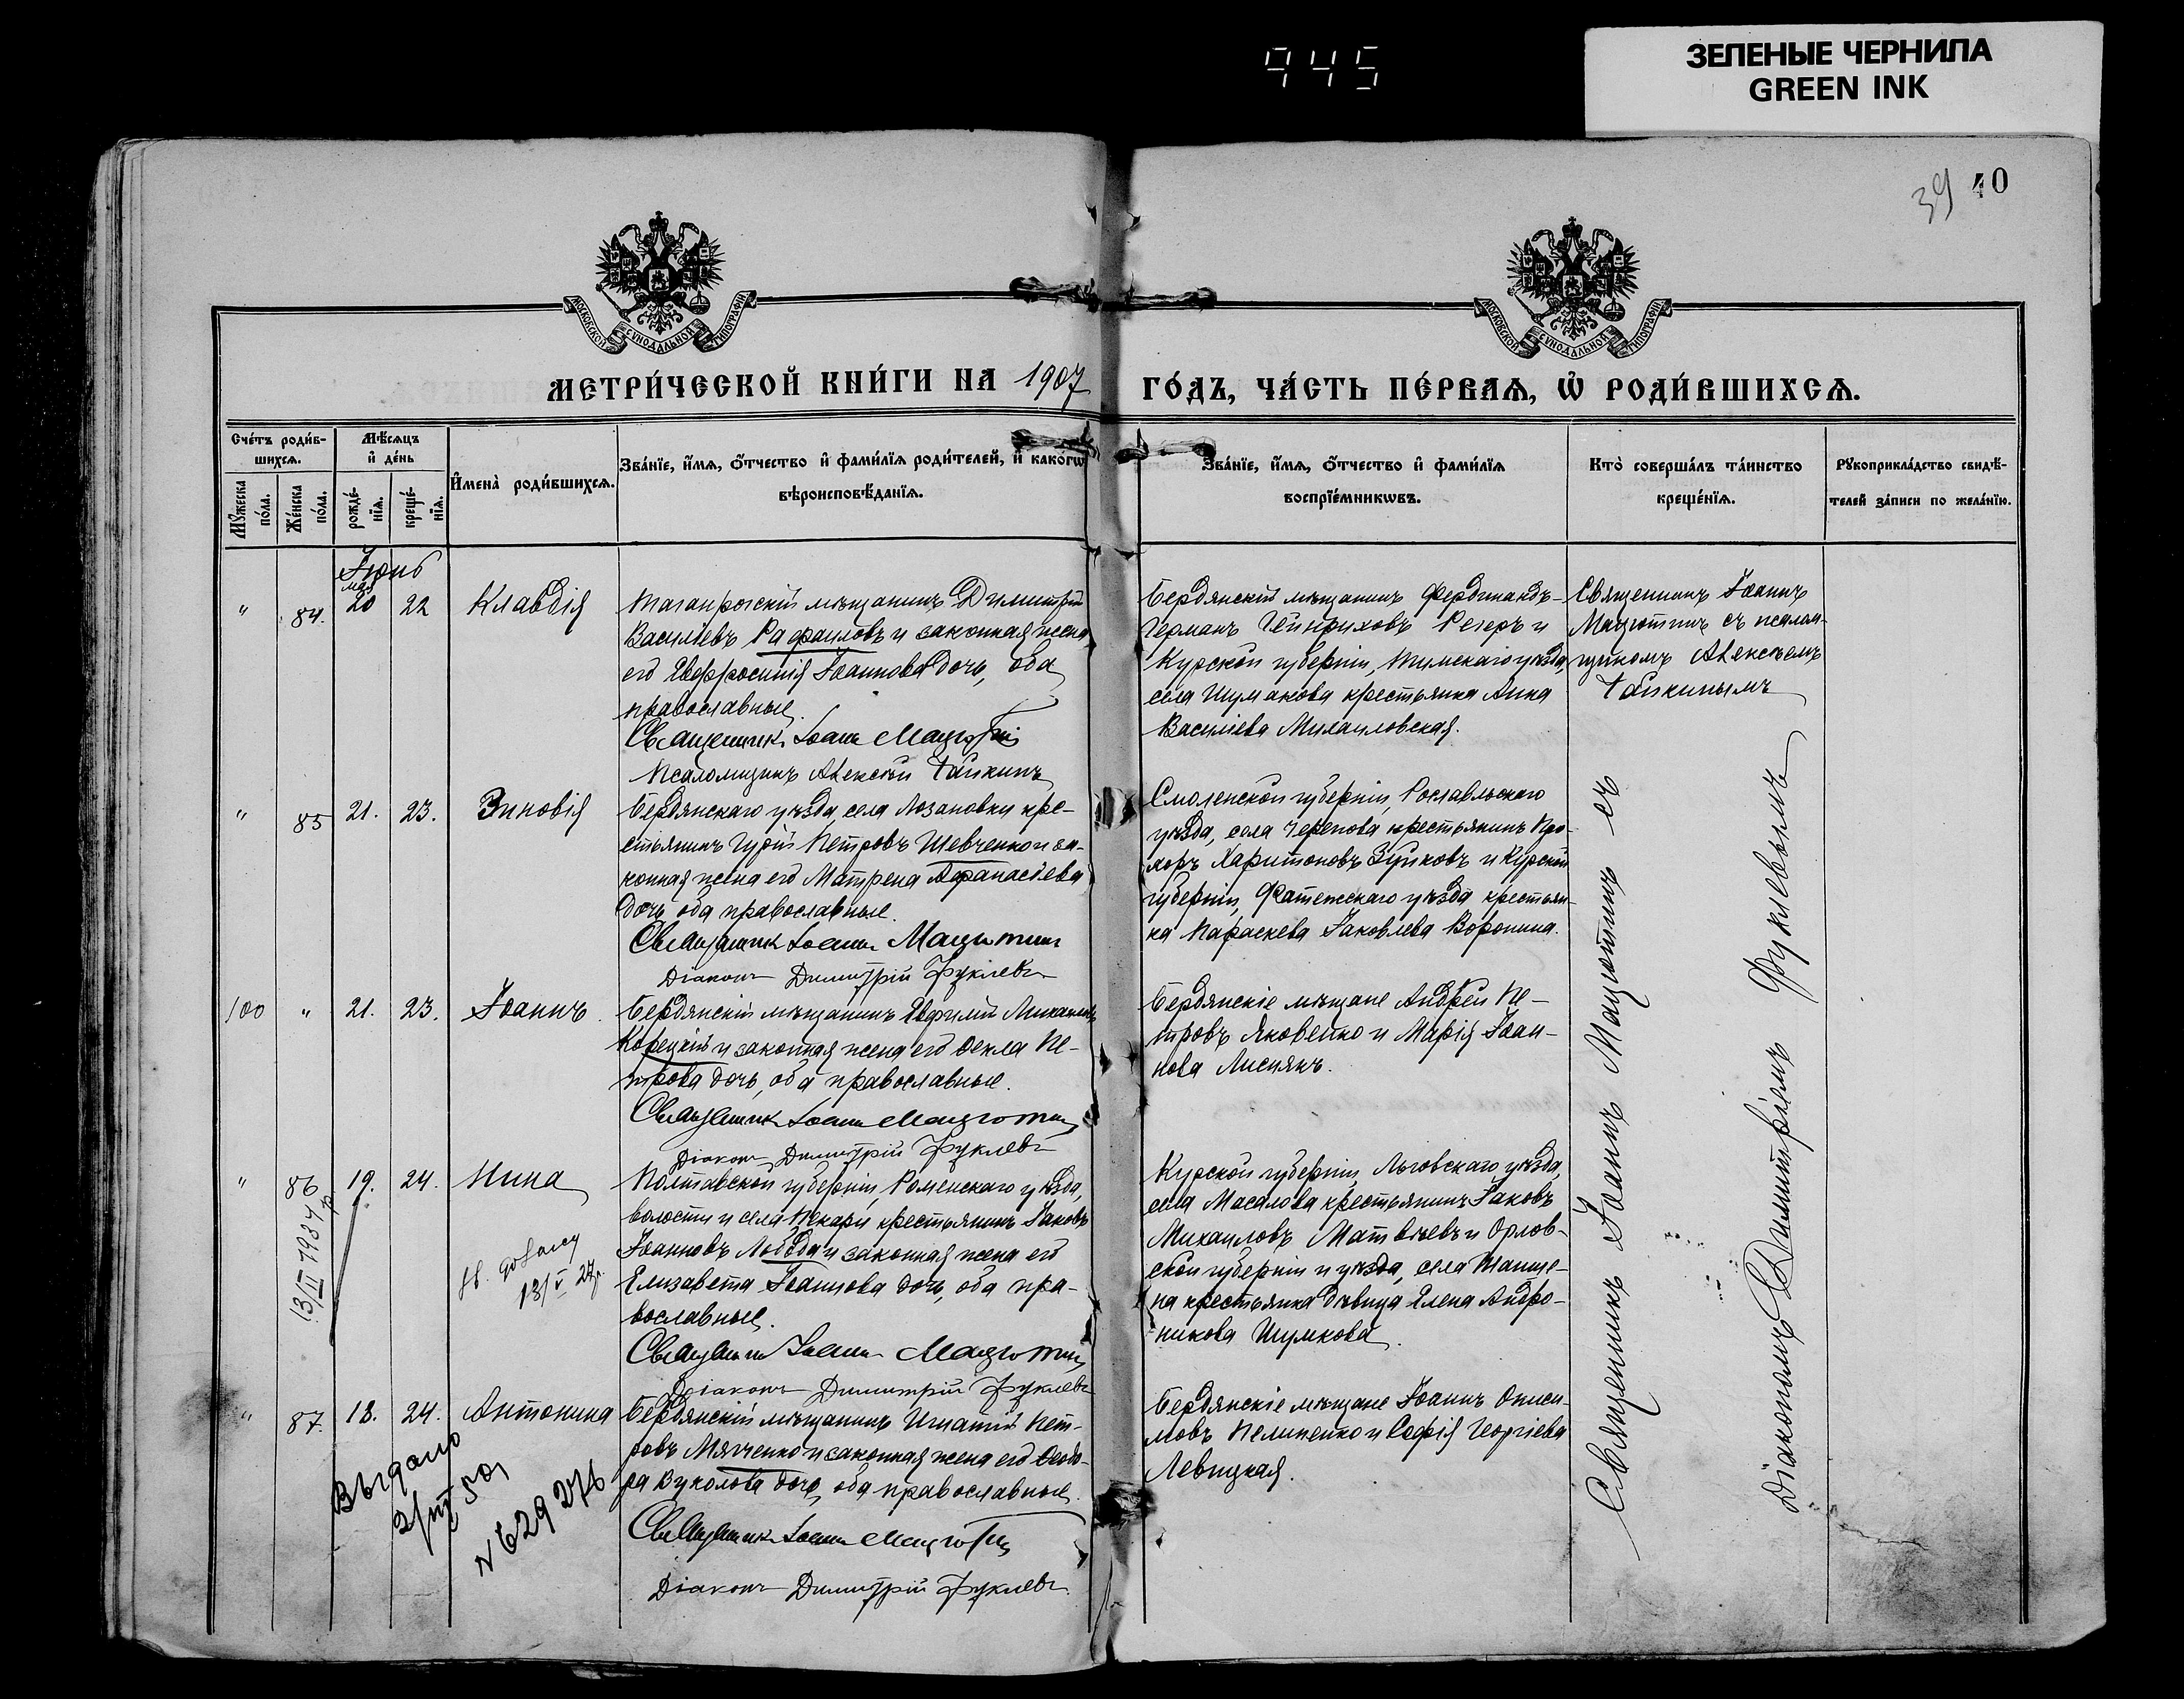 945
ЗЕЛЕНЫЕ ЧЕРНИЛА
GREEN INK
39 40
МОСКОВСКОЙ СѴНОДАЛЬНОЙ ТИПОГРАФІИ
МОСКОВСКОЙ СѴНОДАЛЬНОЙ ТИПОГРАФІИ
МЕТРИ́ЧЕСКОЙ КНИ́ГИ НА 1907 ГО́ДЪ, ЧА́СТЬ ПЕ́РВАѦ, Ѡ҆ РОДИ́ВШИХСѦ.
Сче́тъ роди́в-
шихсѧ.
Мꙋ́жеска по́ла.
Же́нска по́ла.
Мѣ́сѧцъ
и҆ де́нь
рожде́-
нїѧ.
креще́-
нїѧ.
И҆мена̀ роди́вшихсѧ.
Зва́нїе, и҆́мѧ, ѻ҆́тчество и҆ фами́лїѧ роди́телей, и҆ како́гѡ
вѣроисповѣ́данїѧ.
Зва́нїе, и҆́мѧ, ѻ҆́тчество и҆ фами́лїѧ
воспрїе́мникѡвъ.
Кто̀ соверша́лъ та́инство
креще́нїѧ.
Рꙋкоприкла́дство свидѣ́-
телей за́писи по жела́нїю.
Іюнь
мая
" 84. 20 22 Клавдія
Таганрогскій мѣщанинъ Димитрій
Василіевъ Рафаиловъ и законная жена
его Евфросинія Іоаннова дочь, оба
православные.
Священникъ Іоаннъ Мацютинъ
Псаломщикъ Алексѣй Чайкинъ
Бердянскій мѣщанинъ Фердинандъ-
Германъ Гейнриховъ Регеръ и
Курской губерніи, Тимскаго уѣзда,
села Шумакова крестьянка Анна
Василіева Михаиловская.
Священникъ Іоаннъ
Мацютинъ съ псалом-
щикомъ Алексѣемъ
Чайкинымъ
" 85 21. 23. Зиновія
Бердянскаго уѣзда, села Лозановки кре-
стьянинъ Гурій Петровъ Шевченко и за-
конная жена его Матрена Афанасіева
дочь, оба православные.
Священникъ Іоаннъ Мацютинъ
Діаконъ Димитрій Фуклевъ
Смоленской губерніи, Рославльскаго
уѣзда, села Черепова крестьянинъ Про-
хоръ Харитоновъ Зуйковъ и Курской
губерніи, Фатежскаго уѣзда крестьян-
ка Параскева Іаковлева Воронина.
100 " 21. 23. Іоаннъ
Бердянскій мѣщанинъ Евфимій Михаиловъ
Корецкій и законная жена его Ѳекла Пе-
трова дочь, оба православные.
Священникъ Іоаннъ Мацютинъ
Діаконъ Димитрій Фуклевъ
Бердянскіе мѣщане Андрей Пе-
тровъ Яковенко и Марія Іоан-
нова Лисиякъ.
" 86 19. 24. Нина
Полтавской губерніи, Роменскаго уѣзда,
волости и села Пекари крестьянинъ Іаковъ
Іоанновъ Лобода и законная жена его
Елизавета Іоаннова дочь, оба пра-
вославные.
Священникъ Іоаннъ Мацютинъ
Діаконъ Димитрій Фуклевъ
13/II 1934 г.
13/V 27г.
Курской губерніи, Льговскаго уѣзда,
села Масалова крестьянинъ Іаковъ
Михаиловъ Матвѣевъ и Орлов-
ской губерніи и уѣзда, села Танше-
на крестьянка дѣвица Елена Андро-
никова Шумкова.
" 87. 13. 24. Антонина
Бердянскій мѣщанинъ Игнатій Пет-
ровъ Мягченко и законная жена его Ѳеодо-
ра Вуколова дочь, оба православные.
Священникъ Іоаннъ Мацютинъ
Діаконъ Димитрій Фуклевъ
Выдано
2/VII 50г
N 629276
Бердянскіе мѣщане Іоаннъ Ониси-
мовъ Пелипейко и Софія Георгіева
Левицкая.
Священникъ Іоаннъ Мацютинъ съ
Діакономъ Димитріемъ Фуклевымъ